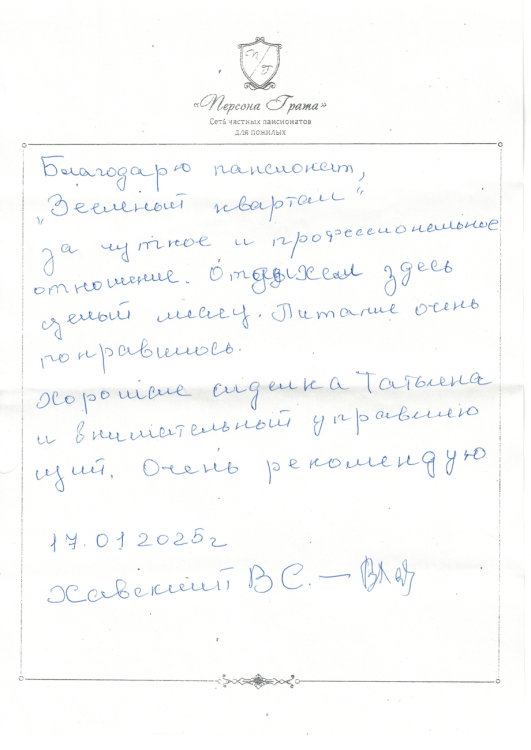 П Г
«Персона Грата»
Сеть частных пансионатов
для пожилых
Благодарю пансионат,
„Зеленый квартал“
за чуткое и профессиональное
отношение. Отдыхал здесь
целый месяц. Питание очень
понравилось.
Хорошие сиделка Татьяна
и внимательный управляю
щий. Очень рекомендую
17.01 2025г
Хавский В С. —